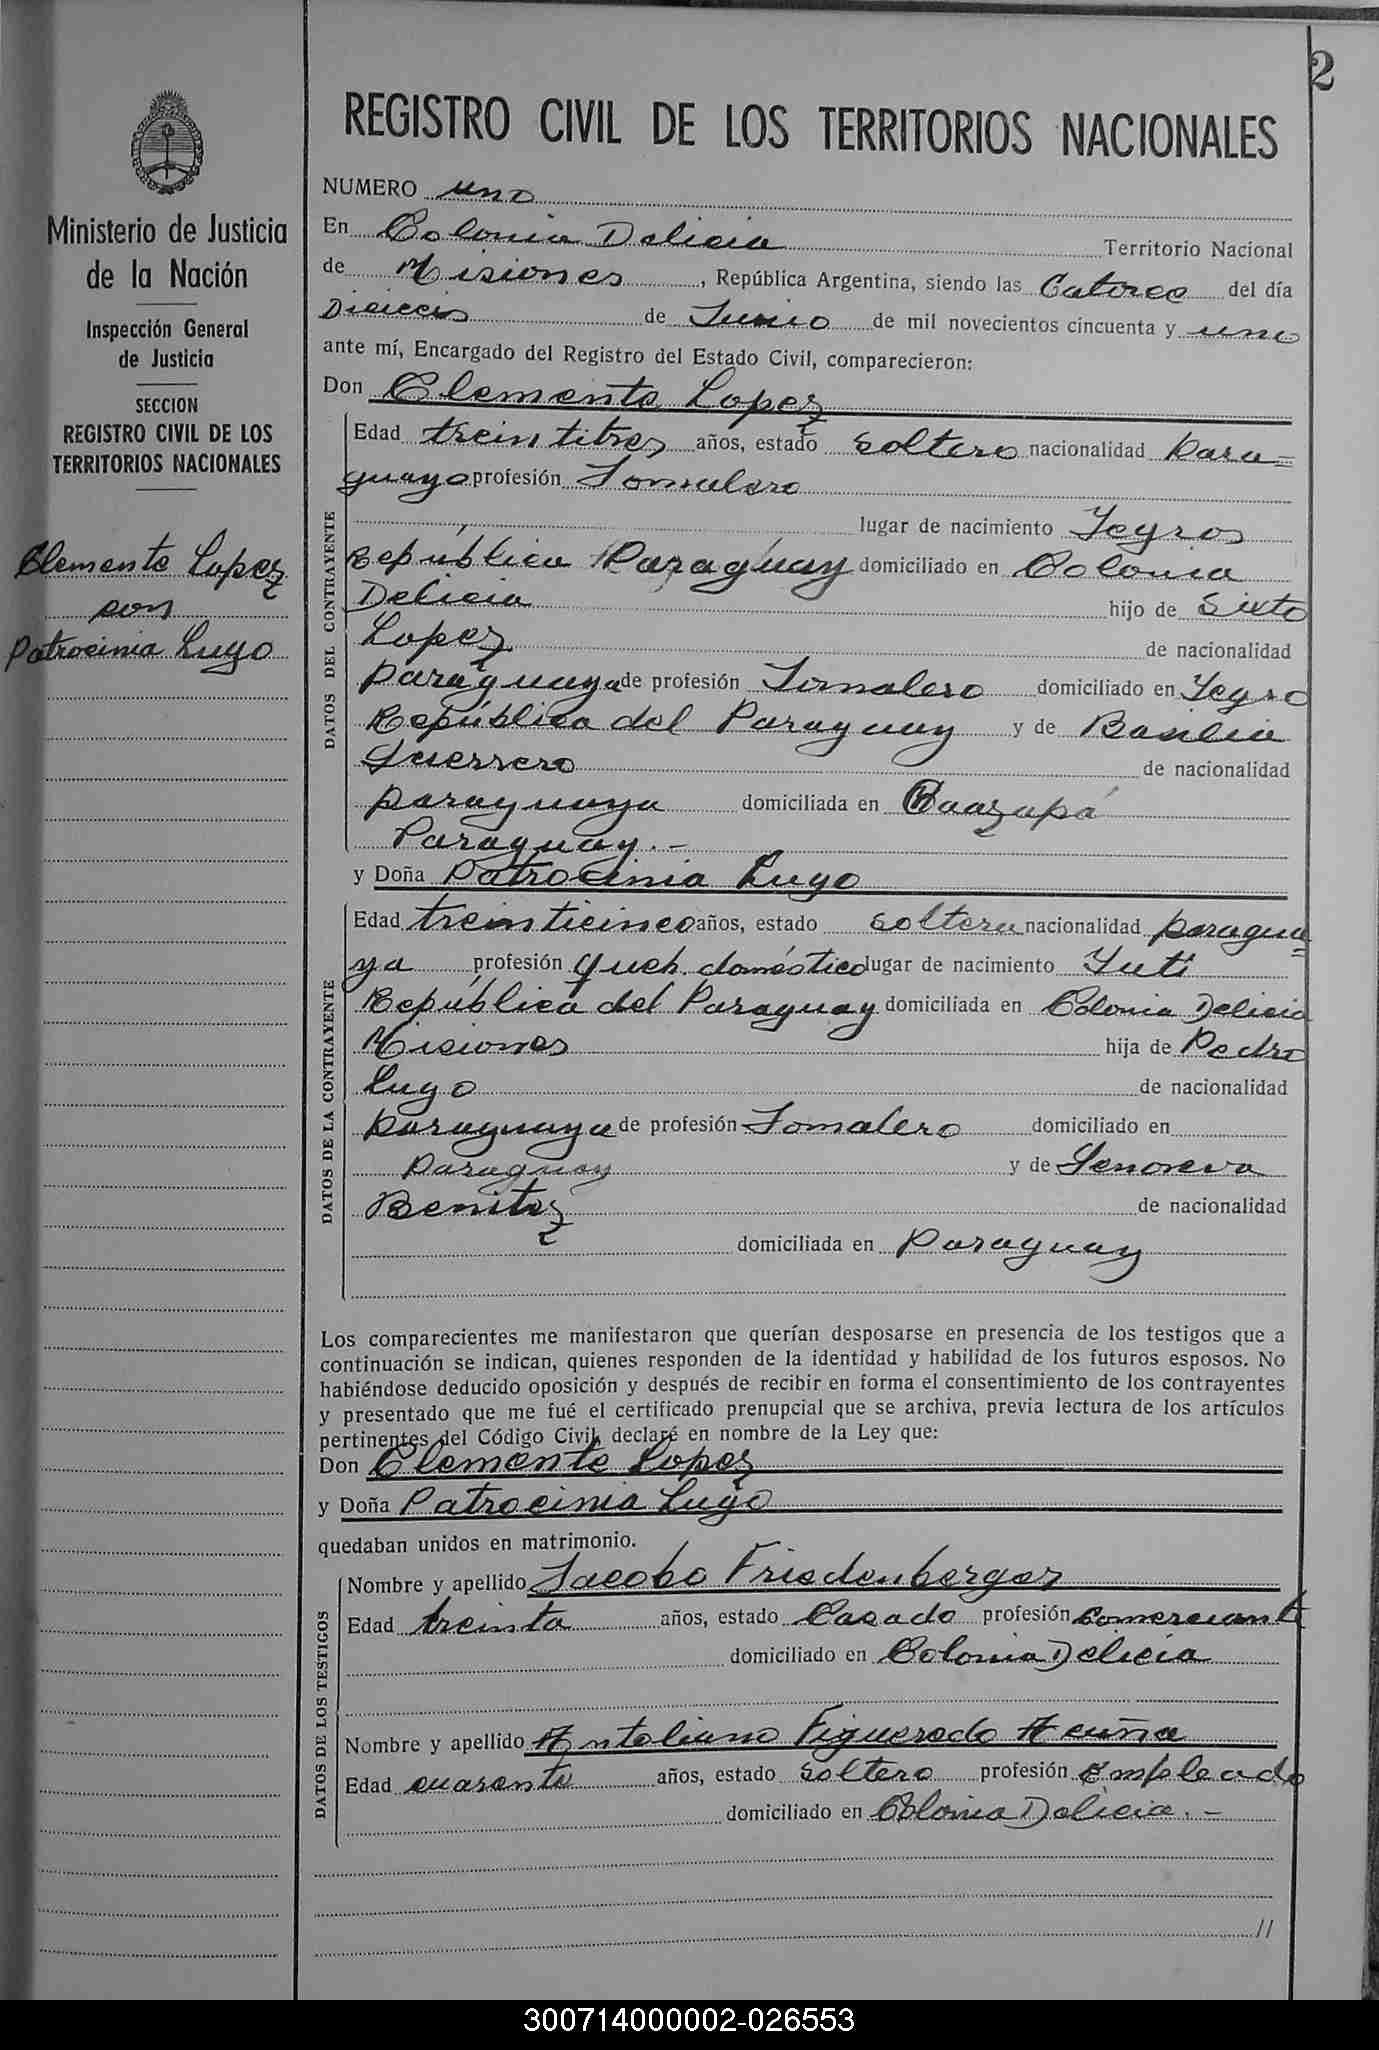 2
REGISTRO CIVIL DE LOS TERRITORIOS NACIONALES
Ministerio de Justicia
de la Nación
Inspección General
de Justicia
SECCION
REGISTRO CIVIL DE LOS
TERRITORIOS NACIONALES
Clemente Lopez
con
Patrocinia Lugo
NUMERO uno
En Colonia Delicia Territorio Nacional
de Misiones, República Argentina, siendo las Catorce del día
Dieiceis de Junio de mil novecientos cincuenta y uno
ante mí, Encargado del Registro del Estado Civil, comparecieron:
Don Clemente Lopez
DATOS DEL CONTRAYENTE
Edad treintitres años, estado soltero nacionalidad para=
guaya profesión Jornalero
lugar de nacimiento Yegros
República Paraguay domiciliado en Colonia
Delicia hijo de Sixto
Lopez de nacionalidad
paraguaya de profesión Jornalero domiciliado en Yegro
República del Paraguay y de Basilia
Guerrero de nacionalidad
paraguaya domiciliada en Caazapá
Paraguay.-
y Doña Patrocinia Lugo
DATOS DE LA CONTRAYENTE
Edad treinticinco años, estado soltera nacionalidad paragua=
ya profesión queh. doméstico lugar de nacimiento Yuti
República del Paraguay domiciliada en Colonia Delicia
Misiones hija de Pedro
Lugo de nacionalidad
paraguaya de profesión Jornalero domiciliado en
Paraguay y de Genoveva
Benitez de nacionalidad
domiciliada en Paraguay
Los comparecientes me manifestaron que querían desposarse en presencia de los testigos que a
continuación se indican, quienes responden de la identidad y habilidad de los futuros esposos. No
habiéndose deducido oposición y después de recibir en forma el consentimiento de los contrayentes
y presentado que me fué el certificado prenupcial que se archiva, previa lectura de los artículos
pertinentes del Código Civil, declaré en nombre de la Ley que:
Don Clemente Lopez
y Doña Patrocinia Lugo
quedaban unidos en matrimonio.
DATOS DE LOS TESTIGOS
Nombre y apellido Jacobo Friedenberger
Edad treinta años, estado Casado profesión Comerciante
domiciliado en Colonia Delicia
Nombre y apellido Antoliano Figueredo Acuña
Edad cuarenta años, estado soltero profesión empleado
domiciliado en Colonia Delicia.-
//
300714000002-026553